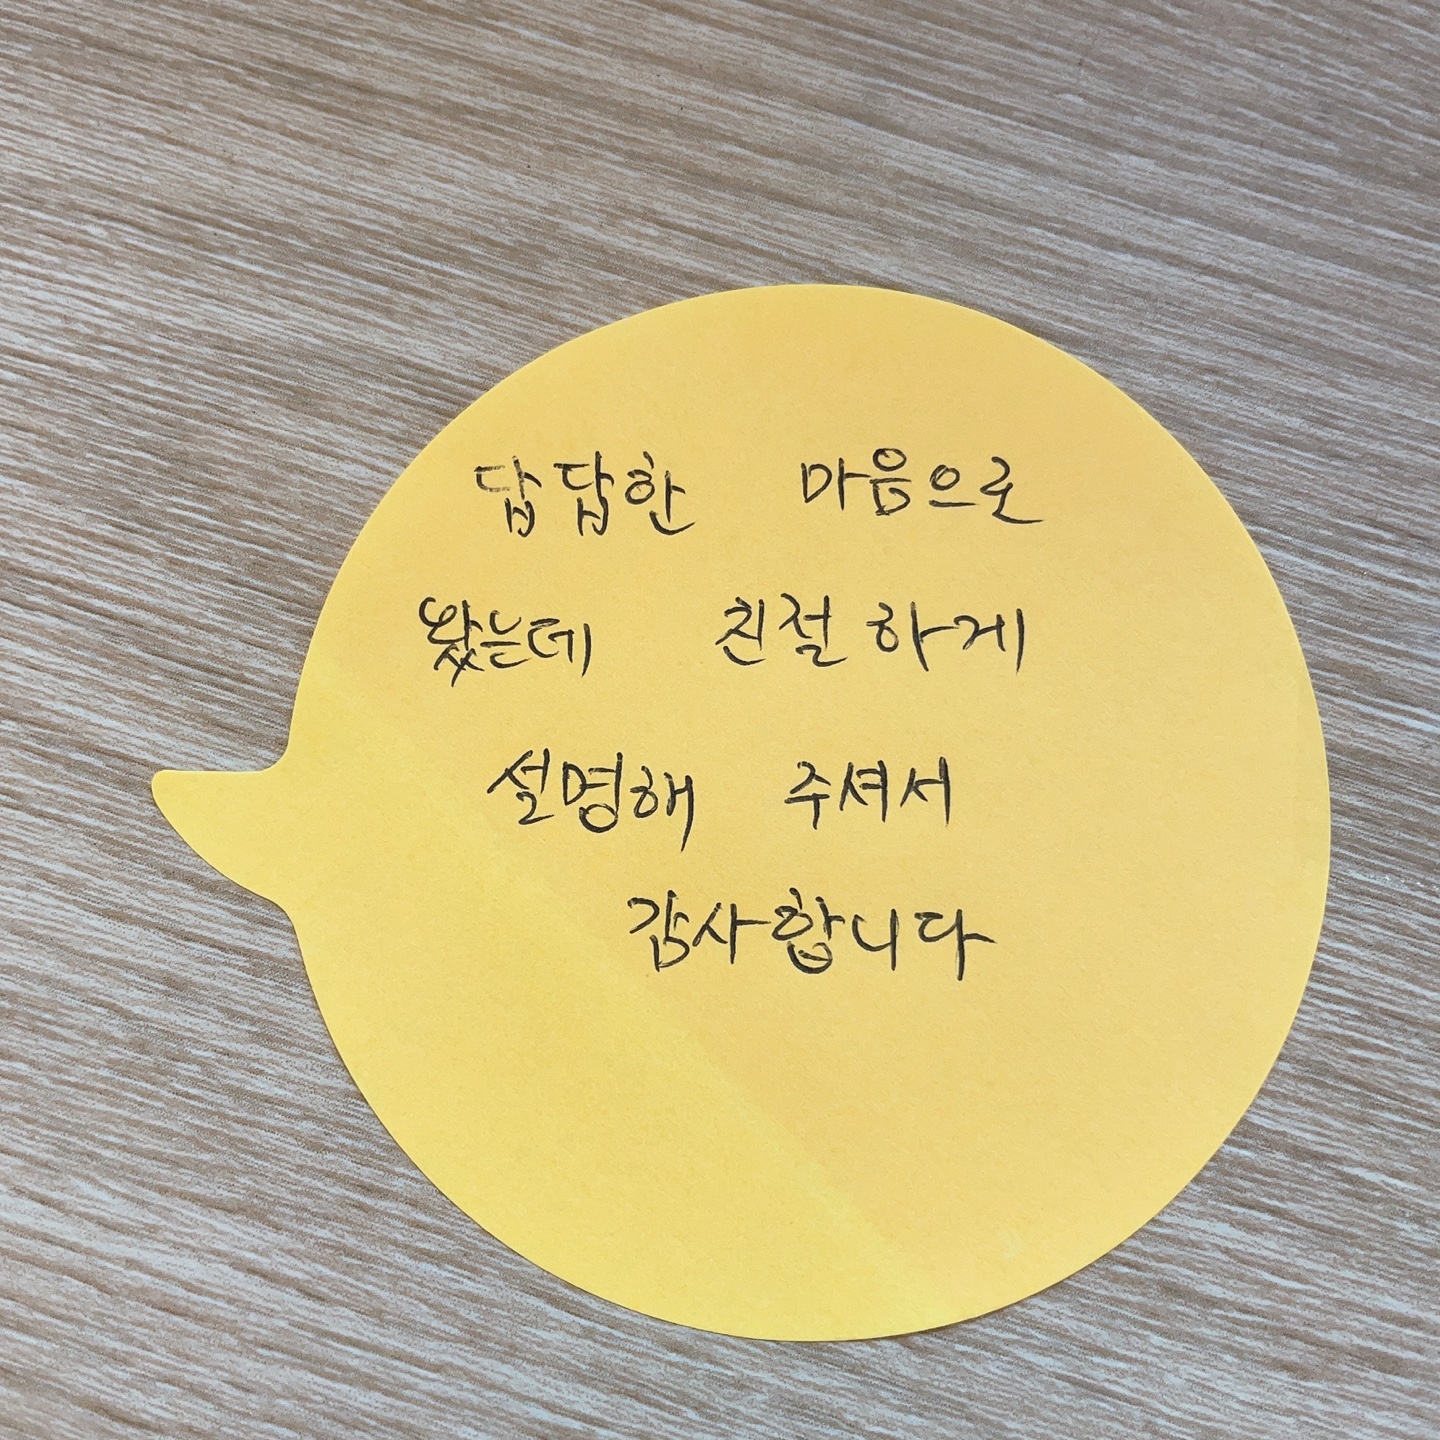 답답한 마음으로
왔는데 친절하게
설명해 주셔서
감사합니다